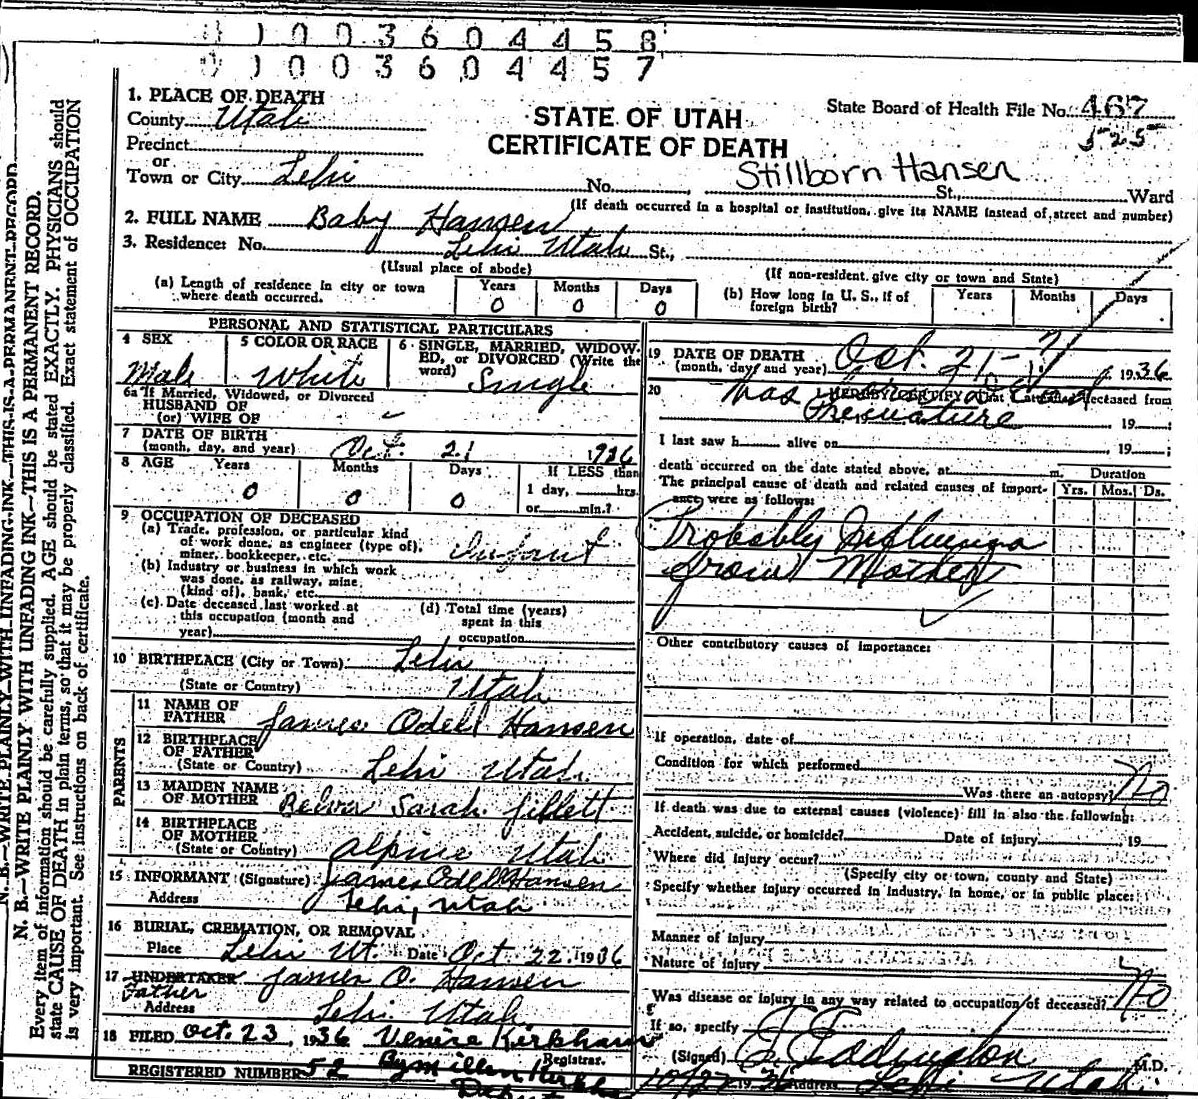 0 1 0 0 3 6 0 4 4 5 8
0 1 0 0 3 6 0 4 4 5 7
N. B.—WRITE PLAINLY WITH UNFADING INK—THIS IS A PERMANENT RECORD.
N. B.—WRITE PLAINLY WITH UNFADING INK—THIS IS A PERMANENT RECORD.
Every item of information should be carefully supplied. AGE should be stated EXACTLY. PHYSICIANS should
state CAUSE OF DEATH in plain terms, so that it may be properly classified. Exact statement of OCCUPATION
is very important. See instructions on back of certificate.
1. PLACE OF DEATH
County Utah
Precinct
or
Town or City Lehi
STATE OF UTAH
CERTIFICATE OF DEATH
State Board of Health File No. 467
525
Stillborn Hansen
No. , St., Ward
(If death occurred in a hospital or institution, give its NAME instead of street and number)
2. FULL NAME Baby Hansen
3. Residence: No. Lehi Utah St.,
(Usual place of abode)
(If non-resident give city or town and State)
(a) Length of residence in city or town
where death occurred.
Years Months Days
0 0 0
(b) How long in U. S., if of
foreign birth?
Years Months Days
PERSONAL AND STATISTICAL PARTICULARS
4 SEX
Male
5 COLOR OR RACE
White
6 SINGLE, MARRIED, WIDOW-
ED, or DIVORCED (Write the
word) Single
6a If Married, Widowed, or Divorced
HUSBAND OF
(or) WIFE OF
7 DATE OF BIRTH
(month, day, and year) Oct. 21 1936
8 AGE Years Months Days If LESS than
0 0 0 1 day, hrs.
or min.?
9 OCCUPATION OF DECEASED
(a) Trade, profession, or particular kind
of work done, as engineer (type of),
miner, bookkeeper, etc. Infant
(b) Industry or business in which work
was done, as railway, mine,
(kind of), bank, etc.
(c) Date deceased last worked at
this occupation (month and
year)
(d) Total time (years)
spent in this
occupation
10 BIRTHPLACE (City or Town) Lehi
(State or Country) Utah
PARENTS
11 NAME OF
FATHER James Odell Hansen
12 BIRTHPLACE
OF FATHER
(State or Country) Lehi Utah
13 MAIDEN NAME
OF MOTHER Belva Sarah Gillett
14 BIRTHPLACE
OF MOTHER
(State or Country) Alpine Utah
15 INFORMANT (Signature) James Odell Hansen
Address Lehi, Utah
16 BURIAL, CREMATION, OR REMOVAL
Place Lehi Ut. Date Oct 22, 1936
17 UNDERTAKER James O. Hansen
Father
Address Lehi Utah
18 FILED Oct. 23, 1936 Venice Kirkham
Registrar.
REGISTERED NUMBER 52
19 DATE OF DEATH
(month, day and year) Oct. 21 - 1936
20 I HEREBY CERTIFY, That I attended deceased from
Was Born Dead
Premature
19 ;
I last saw h alive on , 19 ;
death occurred on the date stated above, at m.
The principal cause of death and related causes of import-
ance were as follows:
Duration
Yrs. Mos. Ds.
Probably Influenza
from Mother
Other contributory causes of importance:
If operation, date of
Condition for which performed
Was there an autopsy? No
If death was due to external causes (violence) fill in also the following:
Accident, suicide, or homicide? Date of injury 19
Where did injury occur?
(Specify city or town, county and State)
Specify whether injury occurred in industry, in home, or in public place:
Manner of injury
Nature of injury
Was disease or injury in any way related to occupation of deceased? No
If so, specify
(Signed) M.D.
10/22 1936 Address Lehi Utah